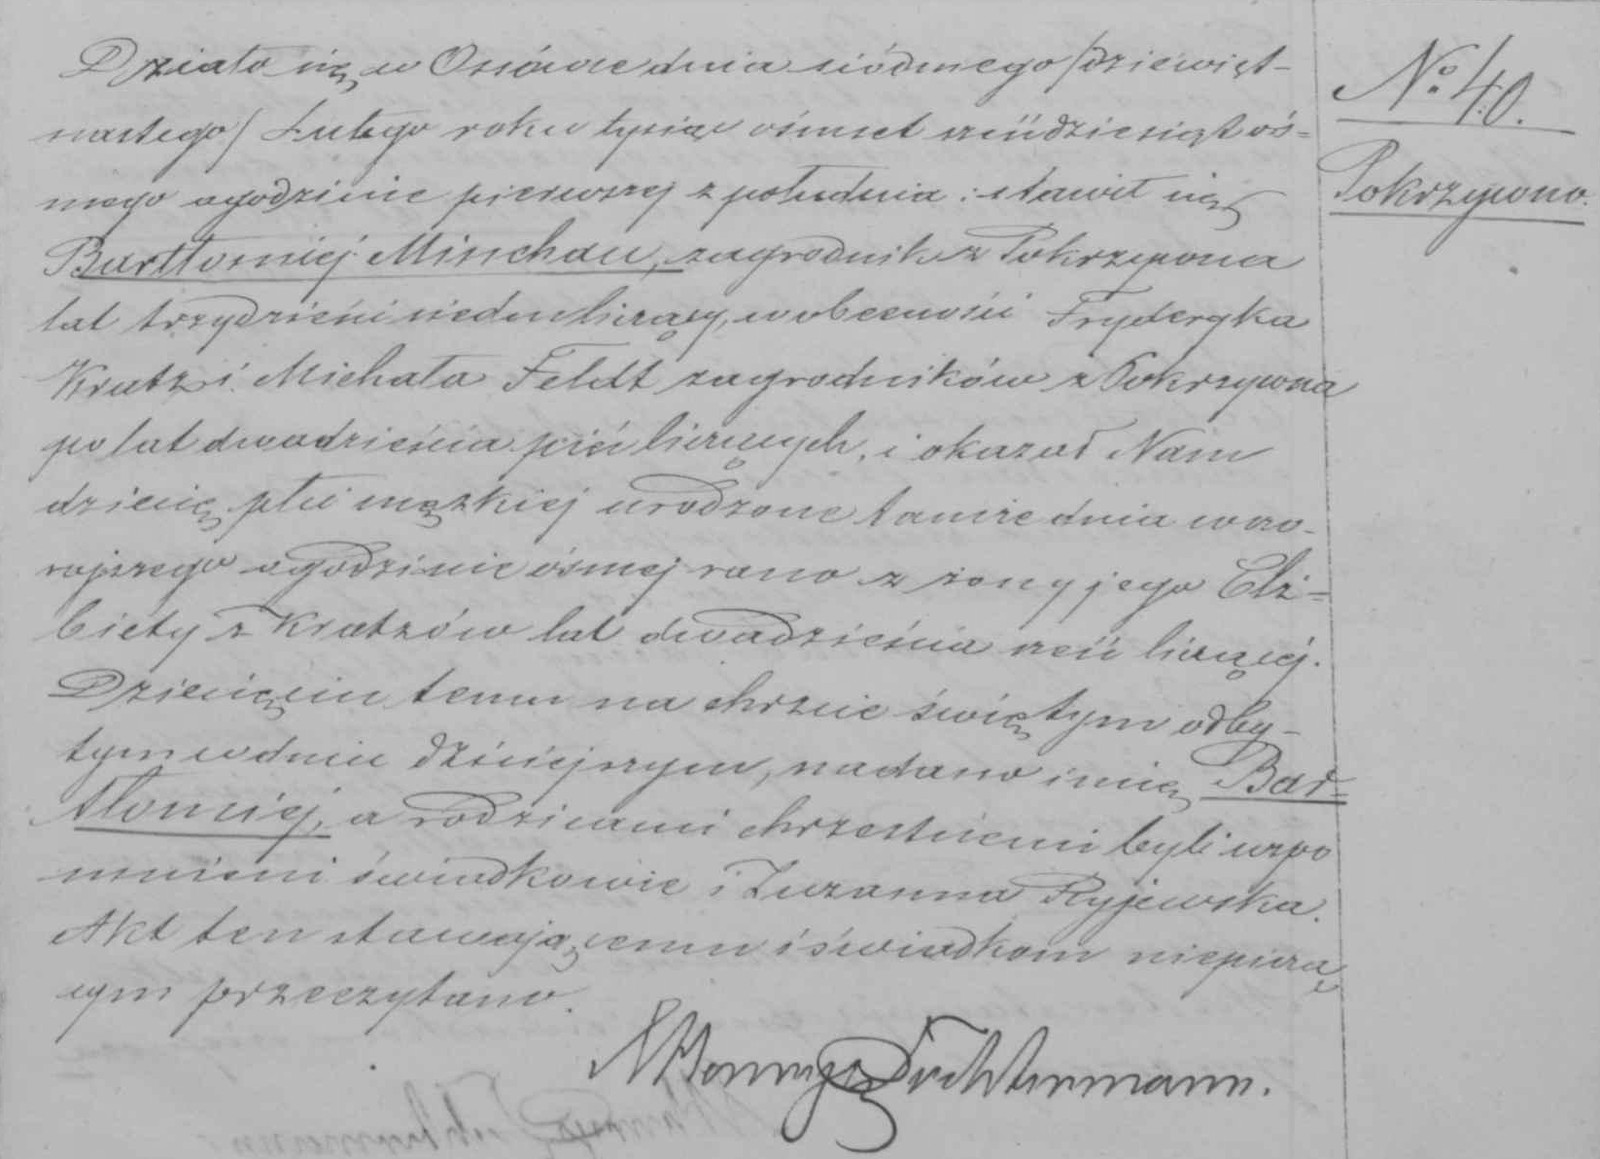 Działo się w Ossówce dnia siódmego /dziewięt-
nastego/ Lutego roku tysiąc ośmset sześdziesiąt ós=
mego o godzinie pierwszej z południa: stawił się
Bartłomiej Minchau, zagrodnik z Pokrzywna
lat trzydzieści siedm liczący, w obecności Fryderyka
Kratz i Michała Feldt zagrodników z Pokrzywna
po lat dwadzieścia pięć liczących, i okazał Nam
dziecię płci męzkiej urodzone tamże dnia wczo-
rajszego o godzinie ósmej rano z żony jego Elż=
biety z Kratzów lat dwadzieścia sześć liczącej.
Dziecięciu temu na chrzcie świętym odby-
tym w dniu dzisiejszym, nadano imię Bar=
tłomiej, a rodzicami chrzestnemi byli wspo
mnieni świadkowie i Zuzanna Ryjewska.
Akt ten stawającemu i świadkom niepiszą
cym przeczytano.
Tochtermann.
No 40.
Pokrzywno.